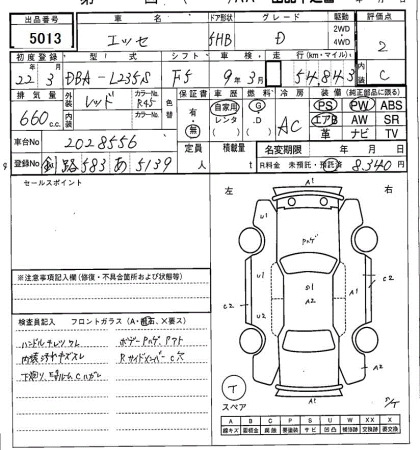 出品番号 車名 ドア形状 グレード 駆動 評価点
5013 エッセ 5HB D 2WD 4WD 2
初度登録 型式 シフト 車検 走行(km・マイル) 内装
22年 3月 DBA-L235S F5 9年 3月 54,843 C
排気量 外装 カラーNo. 色替 保証書 車歴 燃料 冷房 装備(純正部品に限る)
660c.c. レッド R45 有・無 自家用 レンタ G .D AC PS PW ABS
内装 カラーNo. エアB AW SR
革 ナビ TV
車台No 2028556 定員 積載量 名変期限 年 月 日
登録No 釧路 583 あ 5139 人 t t R料金 未預託・預託済 8,340円
セールスポイント
左 右
※注意事項記入欄(修復・不具合箇所および状態等)
検査員記入 フロントガラス(A・飛石、×要ス)
ハンドルチレツ ケレ
内装ヨゴレ キズ スレ
ボデーPハゲ、Pアト
Rサイドメンバー C穴
A1
U1
Pハゲ
U1
U1
D1
A2
A1
C2
C2
A2
A1
T
スペア
A B C P S U W X XX
線キズ 腐食 要塗装 サビ 凹凸 補修跡 交換跡 要交換